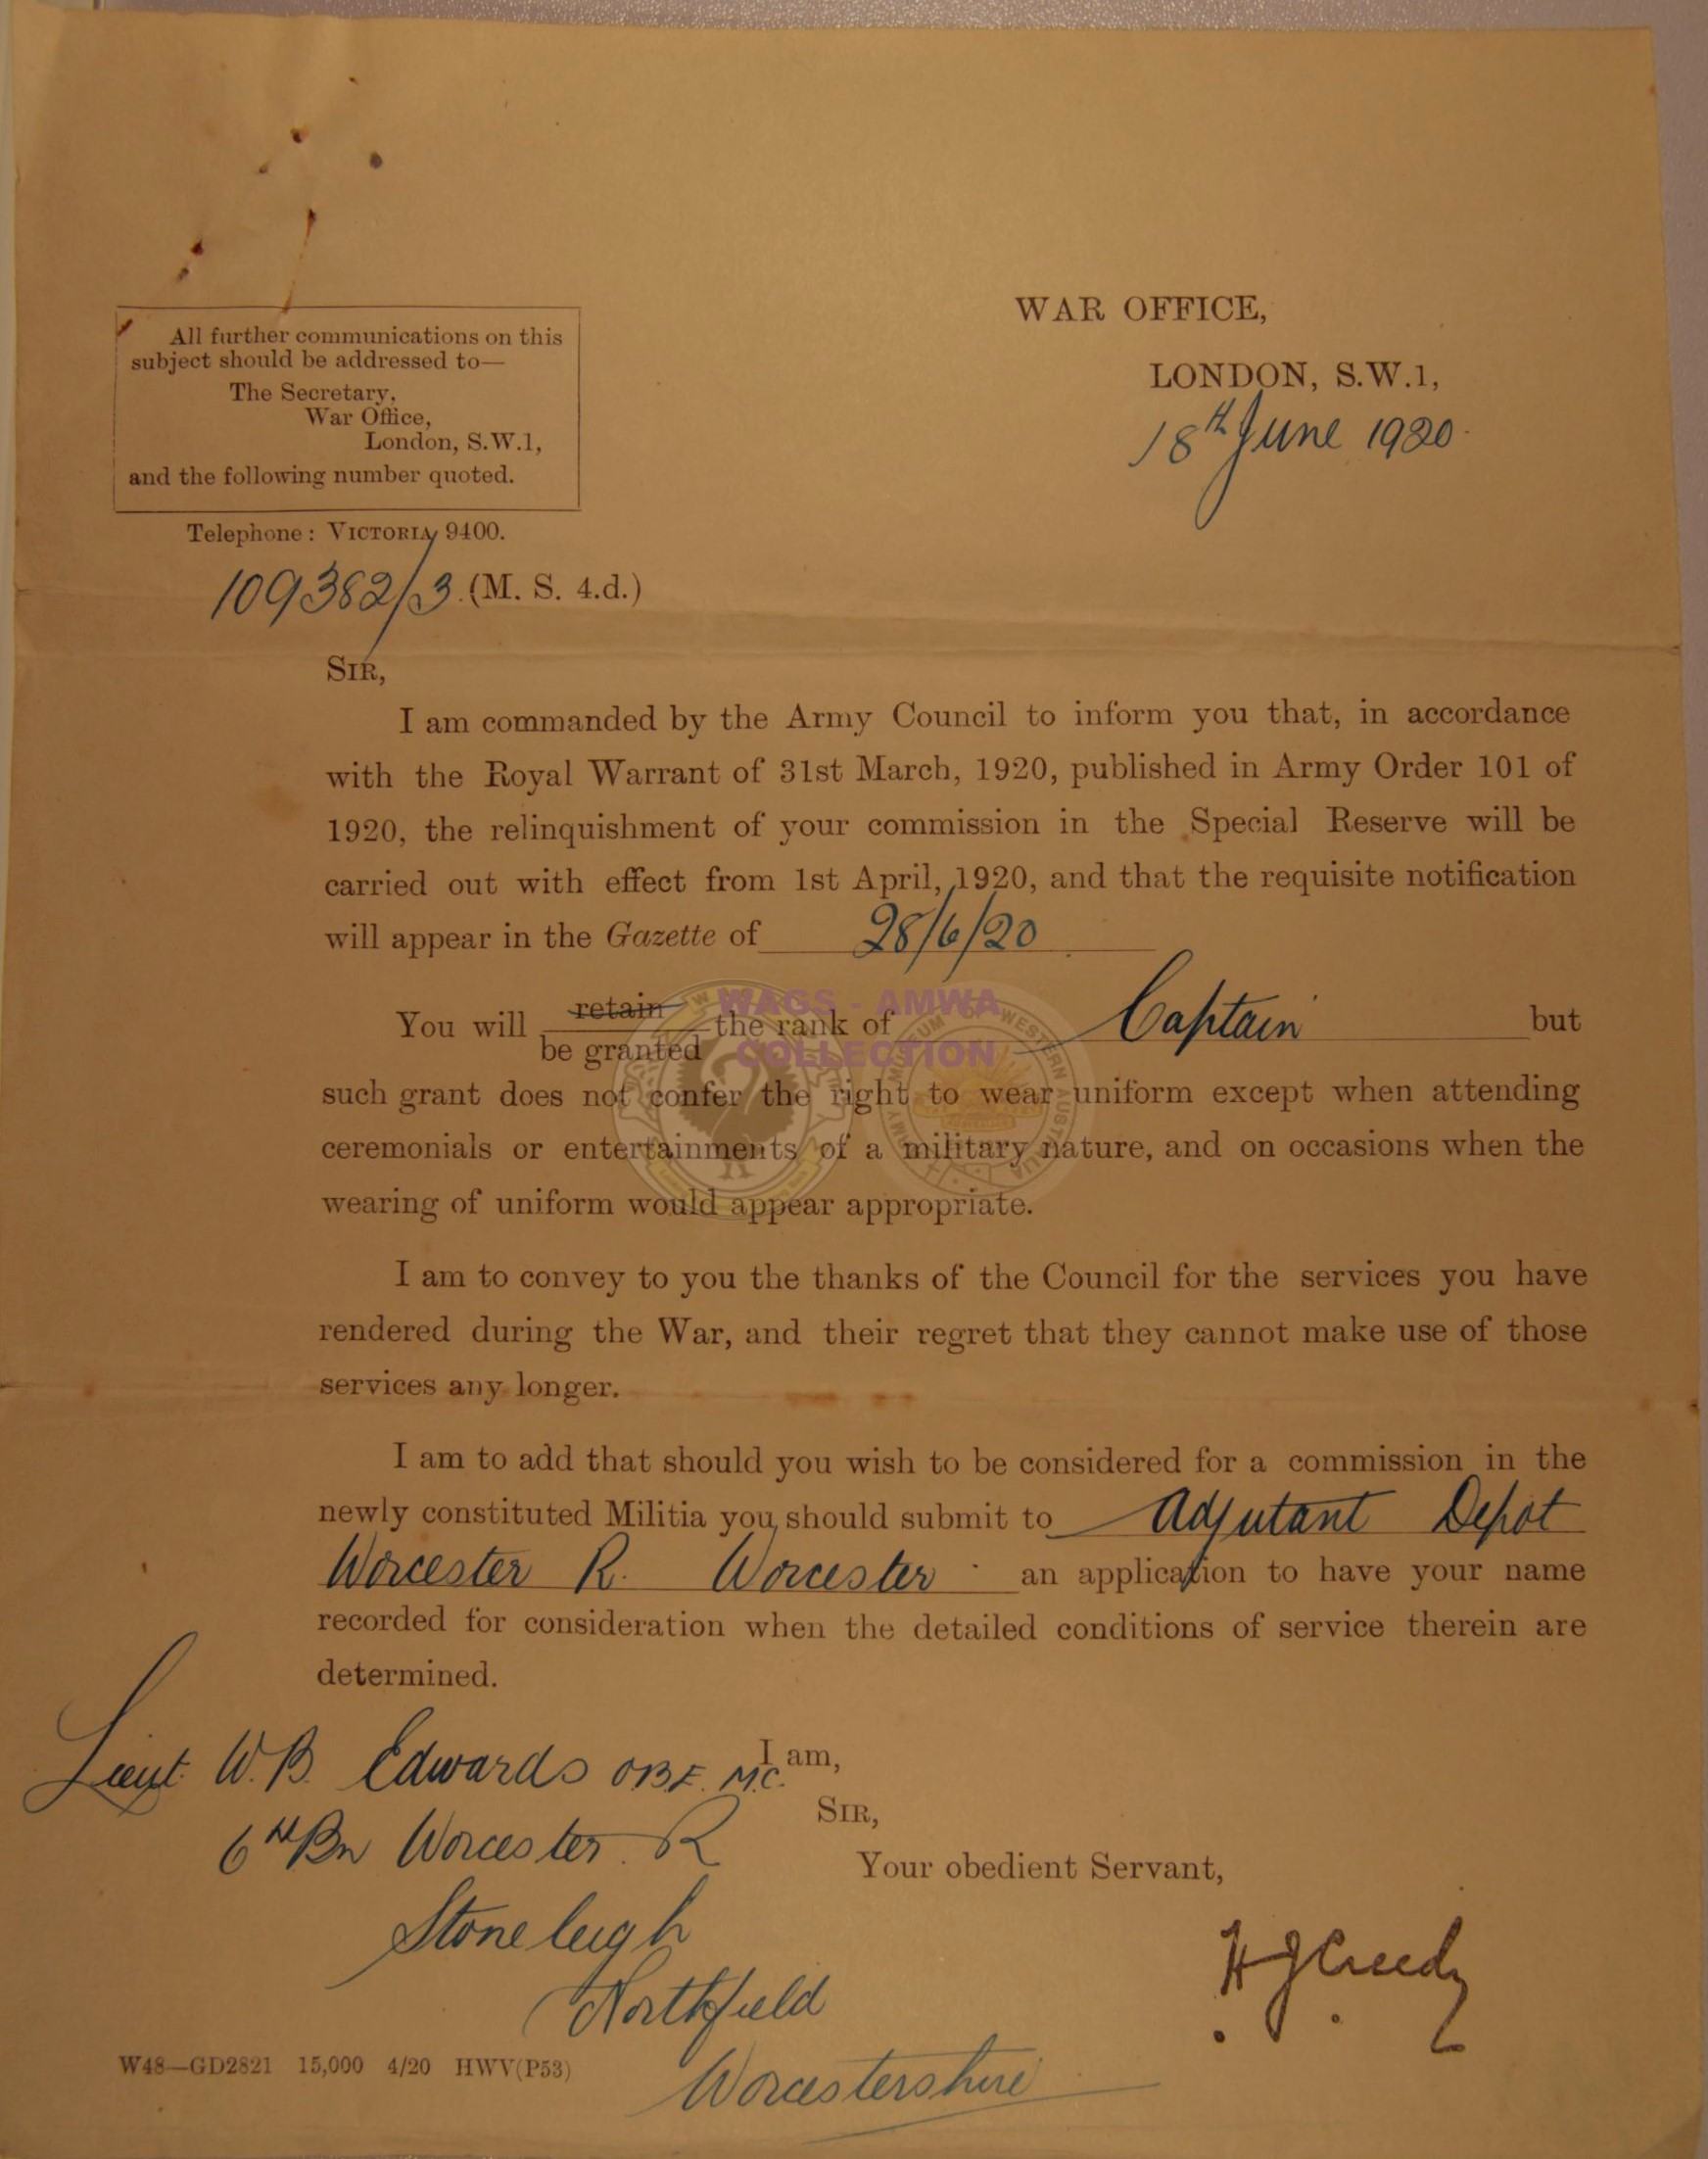 All further communications on this
subject should be addressed to—
The Secretary,
War Office,
London, S.W.1,
and the following number quoted.
Telephone: VICTORIA 9400.
109382/3. (M. S. 4.d.)
WAR OFFICE,
LONDON, S.W.1,
18th June 1920.
SIR,
I am commanded by the Army Council to inform you that, in accordance
with the Royal Warrant of 31st March, 1920, published in Army Order 101 of
1920, the relinquishment of your commission in the Special Reserve will be
carried out with effect from 1st April, 1920, and that the requisite notification
will appear in the Gazette of 28/6/20
You will retain
be granted the rank of Captain but
such grant does not confer the right to wear uniform except when attending
ceremonials or entertainments of a military nature, and on occasions when the
wearing of uniform would appear appropriate.
I am to convey to you the thanks of the Council for the services you have
rendered during the War, and their regret that they cannot make use of those
services any longer.
I am to add that should you wish to be considered for a commission in the
newly constituted Militia you should submit to Adjutant Depot
Worcester R. Worcester an application to have your name
recorded for consideration when the detailed conditions of service therein are
determined.
I am,
SIR,
Your obedient Servant,
HJCreedy
Lieut. W.B. Edwards OBE. M.C.
6th Bn Worcester. R
Stoneleigh
Northfield
Worcestershire
W48—GD2821 15,000 4/20 HWV(P53)
WAGS - AMWA
COLLECTION
MUSEUM OF WESTERN AUSTRALIA